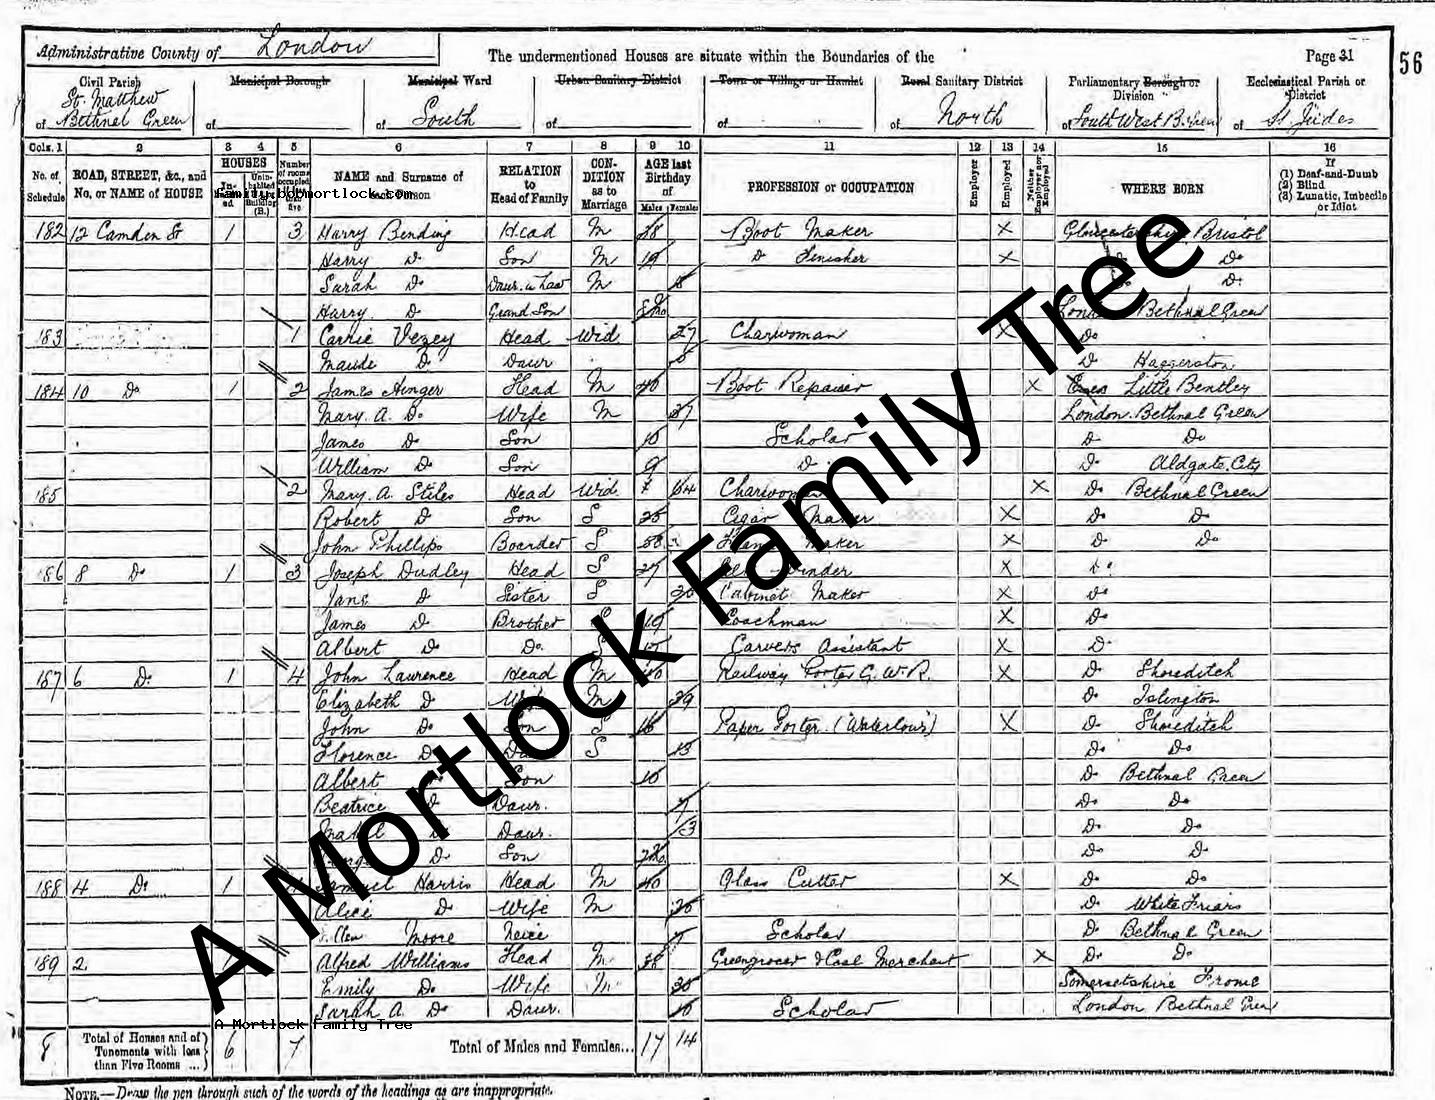 Administrative County of London
The undermentioned Houses are situate within the Boundaries of the
Page 31
56
Civil Parish
of St. Matthew Bethnal Green
Municipal Borough
of
Municipal Ward
of South
Urban Sanitary District
of
Town or Village or Hamlet
of
Rural Sanitary District
of North
Parliamentary Borough or Division
of South West B. Green
Ecclesiastical Parish or District
of St Judes
Cols. 1 2 3 4 5 6 7 8 9 10 11 12 13 14 15 16
No. of Schedule
ROAD, STREET, &c., and No. or NAME of HOUSE
HOUSES
NAME and Surname of
RELATION to Head of Family
CONDITION as to Marriage
AGE last Birthday of
Males Females
PROFESSION or OCCUPATION
Employer
Employed
Neither Employer nor Employed
WHERE BORN
If
(1) Deaf-and-Dumb
(2) Blind
(3) Lunatic, Imbecile or Idiot
family.bobmortlock.com
182 12 Camden St 1 3 Harry Bending Head M 38 Boot Maker X Gloucestershire Bristol
Harry Do Son M 19 Do Finisher X Do Do
Sarah Do Daur. in Law M Do Do
Harry Do Grand Son London Bethnal Green
183 1 Carrie Vezey Head Wid 27 Charwoman X Do
Maude Do Daur Do Haggerston
184 10 Do 1 2 James Head M 40 Boot Repairer X Essex Little Bentley
Mary. A. Do Wife M 37 London. Bethnal Green
James Do Son 10 Scholar Do Do
William Do Son 9 Do Do Aldgate. City
185 2 Mary. A. Stiles Head Wid. 64 Charwoman X Do Bethnal Green
Robert Do Son S 25 Cigar Maker X Do Do
John Phillips Boarder S Maker X Do Do
186 8 Do 1 3 Joseph Dudley Head S 27 X Do
Jane Do Sister S 30 Cabinet Maker X Do
James Do Brother S 19 Coachman X Do
Albert Do Do S Carvers Assistant X Do
187 6 Do 1 4 John Lawrence Head M 40 Railway Porter G.W.R. X Do Shoreditch
Elizabeth Do Wife M 39 Do Islington
John Do Son S 16 Paper Porter. (Waterlows) X Do Shoreditch
Florence Do Daur S 13 Do Do
Albert Do Son 10 Do Bethnal Green
Beatrice Do Daur. 7 Do Do
Mabel Do Daur. 3 Do Do
Do Son Do Do
188 4 Do 1 Samuel Harris Head M 40 Glass Cutter X Do Do
Alice Do Wife M Do White Friars
Moore Neice 7 Scholar Do Bethnal Green
189 2. Alfred Williams Head M 38 Greengrocer & Coal Merchant X Do Do
Emily Do Wife M 30 Somersetshire Frome
Sarah A. Do Daur. 10 Scholar London Bethnal Green
A Mortlock Family Tree
A Mortlock Family Tree
8 Total of Houses and of Tenements with less than Five Rooms ... 6 7 Total of Males and Females... 17 14
NOTE.—Draw the pen through such of the words of the headings as are inappropriate.